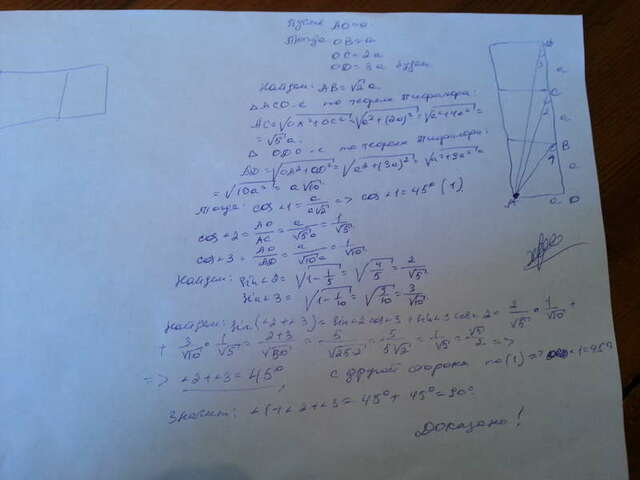 Пусть AO=a.
Тогда OB=a
OC=2a
OD=3a
Найдем: AB=√2 a
△ACO-е по теореме Пифагора:
AC=√OA²+OC²=√a²+(2a)²=√a²+4a²=
=√5 a.
△ по теореме Пифагора:
AD=√OA²+OD²=√a²+(3a)²=√a²+9a²=
=√10a²=a√10
Тогда: cos∠1=a/a√2=>cos∠1=45° (1)
cos∠2=AO/AC=a/√5a=1/√5
cos∠3=AO/AD=a/√10a=1/√10
Найдем: sin∠2=√1-1/5=√4/5=2/√5
sin∠3=√1-1/10=√9/10=3/√10
Найдем: sin(∠2+∠3)=sin∠2 cos∠3+sin∠3 cos∠2=2/√5•1/√10+
+3/√10•1/√5=2+3/√50=5/√25·2=5/5√2=1/√2=√2/2=>
=>∠2+∠3=45°, с другой стороны по(1)=>∠1=45°
Значит: ∠1+∠2+∠3=45°+45°=90°
Доказано!
C
2
a
B
1
a
A
a